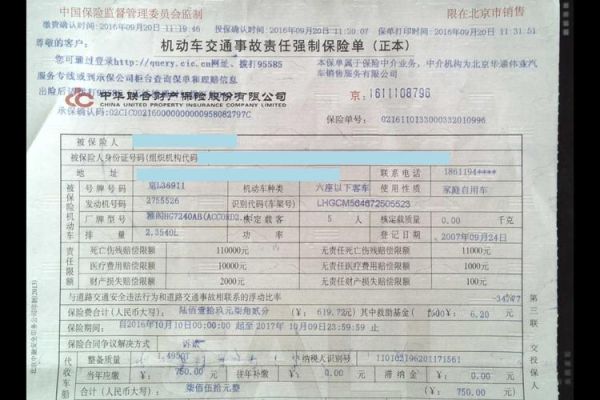 中国保险监督管理委员会监制
限在北京市销售
缴费确认时间:2016年09月20日 11:19:46 投保确认时间:2016年09月20日 11:20:07 保单打印时间:2016年09月20日 11:31:51
尊敬的客户:
机动车交通事故责任强制保险单(正本)
您可通过登录http://query.cic.cn网址、拨打95585
服务专线或到承保公司柜台查询保单和理赔信息
本保单属于保险中介业务,中介机构为北京华通伟业汽
车销售服务有限公司
出险后请拨打95585
中华联合财产保险股份有限公司
CHINA UNITED PROPERTY INSURANCE COMPANY LIMITED
京:1611108796
承保确认码:
保险单号: 0216110133000332010996
被保险人
被保险人身份证号码(组织机构代码
地 址
联系电话 1861194****
被保险机动车
号牌号码 京L36911 机动车种类 六座以下客车 使用性质 家庭自用车
发动机号 2755526 识别代码(车架号) LHGCM564672505523
厂牌型号 雅阁HG7240AB(ACCORD2. 核定载客 5 人 核定载质量 0.00 千克
排 量 2.3540L 登记日期 2007年09月24日
责任限额
死亡伤残赔偿限额 110000元 无责任死亡伤残赔偿限额 11000元
医疗费用赔偿限额 10000元 无责任医疗费用赔偿限额 1000元
财产损失赔偿限额 2000元 无责任财产损失赔偿限额 100元
与道路交通安全违法行为和道路交通事故相联系的浮动比率
保险费合计(人民币大写): 陆佰壹拾玖元柒角贰分 (¥: 619.72元) 其中救助基金( ¥: 6.20 元
保险期间 自2016年10月10日00:00:00 起至 2017年10月09日23:59:59 止
保险合同争议解决方式 诉讼
代收车船
整备质量 纳税人识别号 110102196201171561
当年应缴 ¥: 750.00 元 往年补缴 ¥: 0.00 元 滞纳金 ¥: 0.00 元
合计(人民币大写): 柒佰伍拾元整 (¥: 750.00 元)
第三联 交投保人